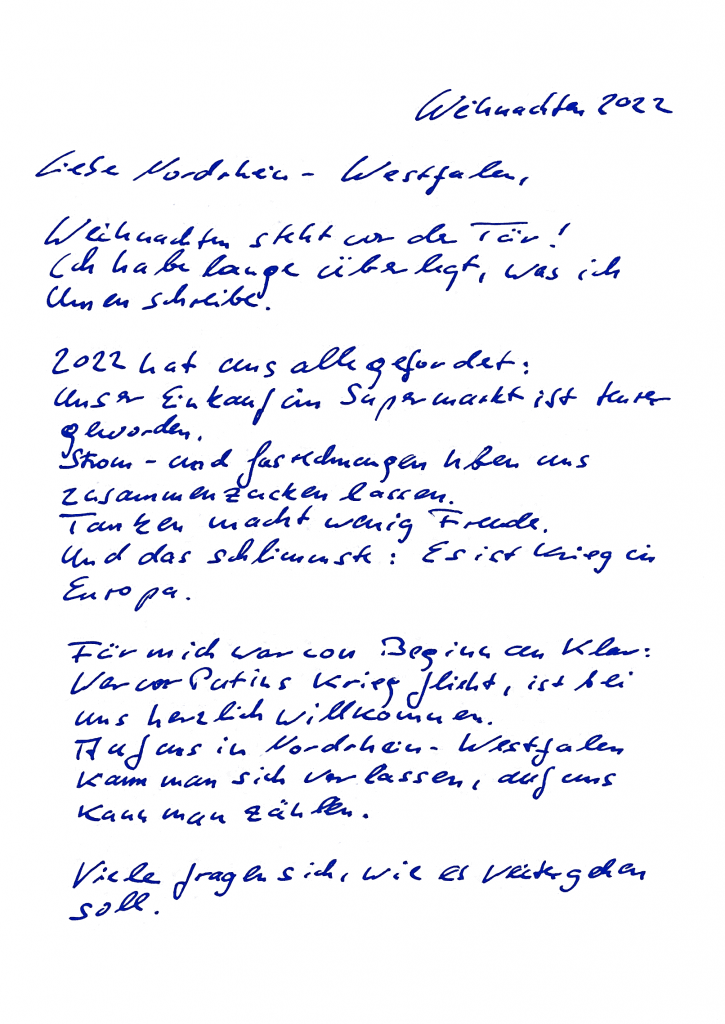 Weihnachten 2022
Liebe Nordrhein-Westfalen,
Weihnachten steht vor der Tür!
Ich habe lange überlegt, was ich
Ihnen schreibe.
2022 hat uns alle gefordert:
Unser Einkauf im Supermarkt ist teurer
geworden.
Strom- und Gasrechnungen haben uns
zusammenzucken lassen.
Tanken macht wenig Freude.
Und das schlimmste: Es ist Krieg in
Europa.
Für mich war von Beginn an klar:
Wer vor Putins Krieg flieht, ist bei
uns herzlich willkommen.
Auf uns in Nordrhein-Westfalen
kann man sich verlassen, auf uns
kann man zählen.
Viele fragen sich, wie es weitergehen
soll.